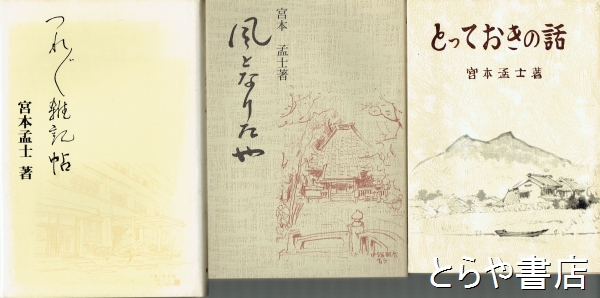 つれ〴〵雑記帖
宮本孟士 著
宮本 孟士著
風となりたや
とっておきの話
宮本孟士著
とらや書店